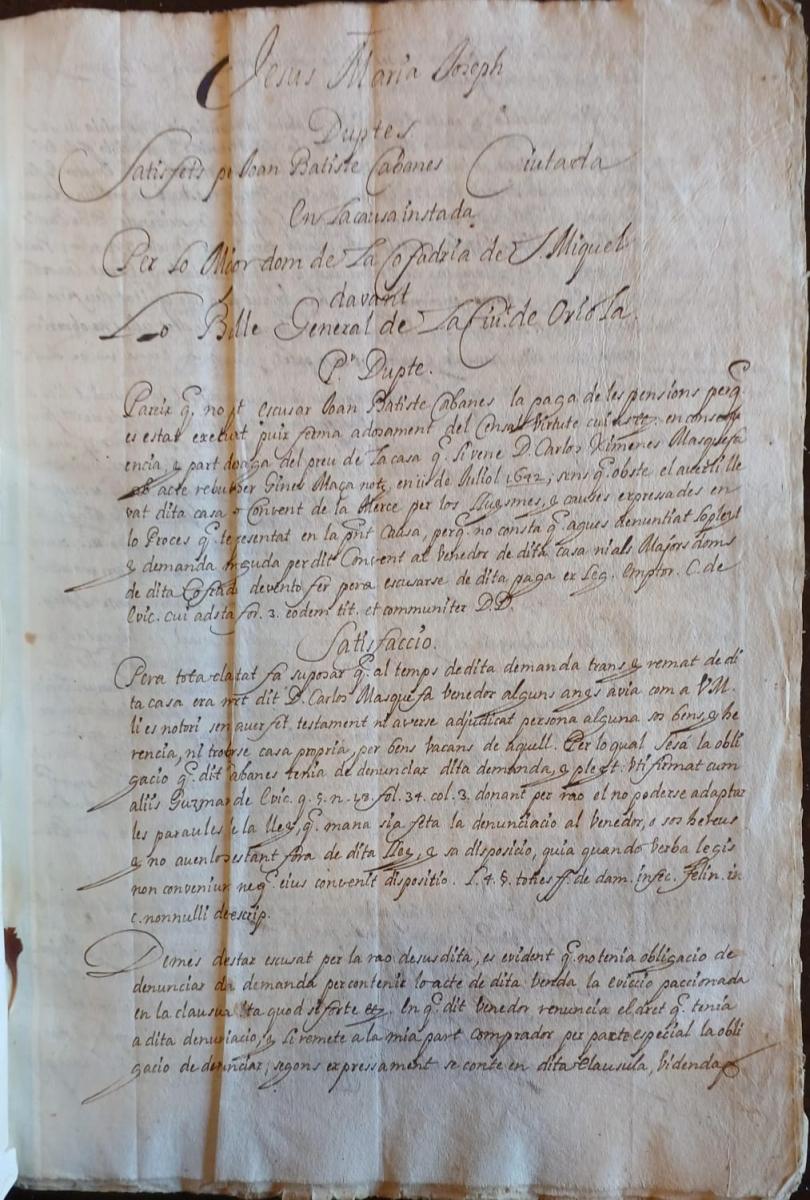 Jesus Maria Joseph
Duptes
Satisfets pr Joan Batiste Cabanes Ciutada
En la causa instada
Per Lo Mior dom de La Cofadria de S. Miquel
davant
Lo Balle General de La Ciut. de Oriola.
Pr. Dupte.
Pareix q. no pt escusar Joan Batiste Cabanes la paga de les pensions perq.
es estar executat puix ferma adosament del Censal virtute cuius etc. en conseq
encia, e part de paga del preu de La casa q. li vene D. Carlos Ximenes Masquefa
ab acte rebut per Gines Maça nott. en 11 de Juliol 1642; sens q. obste el averli lle
vat dita casa lo Convent de la Merce per los lluysmes, e causes expressades en
lo Proces q. te presentat en la pnt Causa, perq. no consta q. agues denuntiat lo pleyt
e demanda moguda per dit Convent al Venedor de dita casa ni als Majors doms
de dita Cofadria devent o fer pera escusarse de dita paga ex Leg. emptor. C. de
Evic. cui adstat for. 3. eodem tit. et communiter D.D.
Satisfaccio.
Pera tota claritat fa suposar q. al temps de dita demanda trans e remat de di
ta casa era mrt dit D. Carlos Masquefa venedor alguns anys avia com a V.M.
li es notori sen aver fet testament ni averse adjudicat persona alguna sos bens, e he
rencia, ni trobrse casa propria, per bens vacans de aquell. Per lo qual sesa la obli
gacio q. dit Cabanes tenia de denunciar dita demanda, e pleyt. Vti firmat cum
aliis Guzman de Evic. q. 5. n. 48. fol. 34. col. 3. donant per rao el no poderse adaptar
les paraules de la lley, q. mana sia feta la denunciacio al Venedor, o sos hereus
e no avenlos estant fora de dita lley, e sa disposicio, quia quando verba legis
non conveniunt neq. eius convenit dispositio. L. 4. §. toties ff. de dam. infec. Felin. in
c. nonnulli de rescrip.
Demes destar escusat per la rao desusdita, es evident q. no tenia obligacio de
denunciar da demanda per contenir lo acte de dita venda la eviccio paccionada
en la clausua ita quod si forte etc. En q. dit Venedor renuncia el dret q. tenia
a dita denunciacio, e li remete a la mia part comprador per pacte especial la obli
gacio de denunciar, segons expressament se conte en dita Clausula, videnda